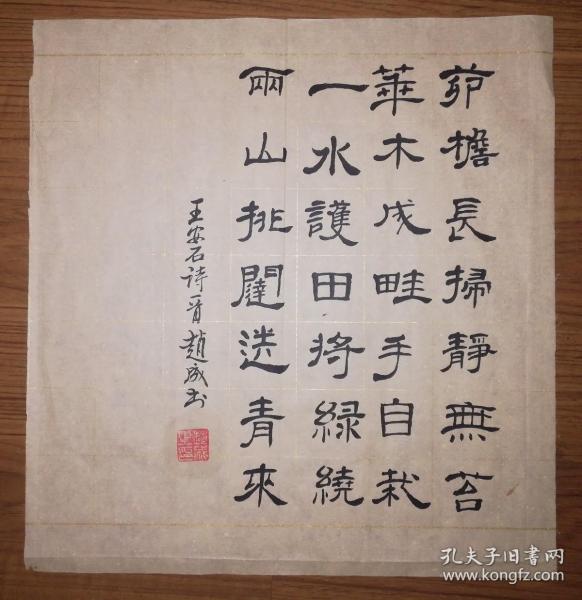 茆檐長掃靜無苔
華木成畦手自栽
一水護田將綠繞
兩山排闥送青來
王安石詩一首 趙成書
孔夫子旧书网
www.kongfz.com